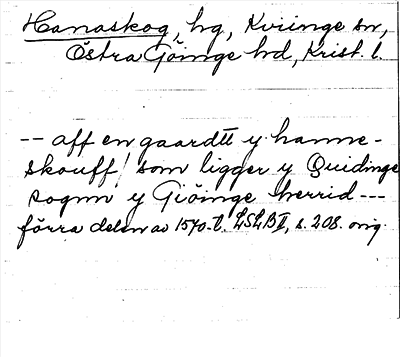 Hanaskog, hg, Kviinge sn,
Östra Göinge hd, Krist. l.
-- aff en gaardtt y hanne-
skouff! som ligger y Quidinge
sognn y Giöinge herrid ---
förra delen av 1570-t. LSLB II, s. 208. orig.